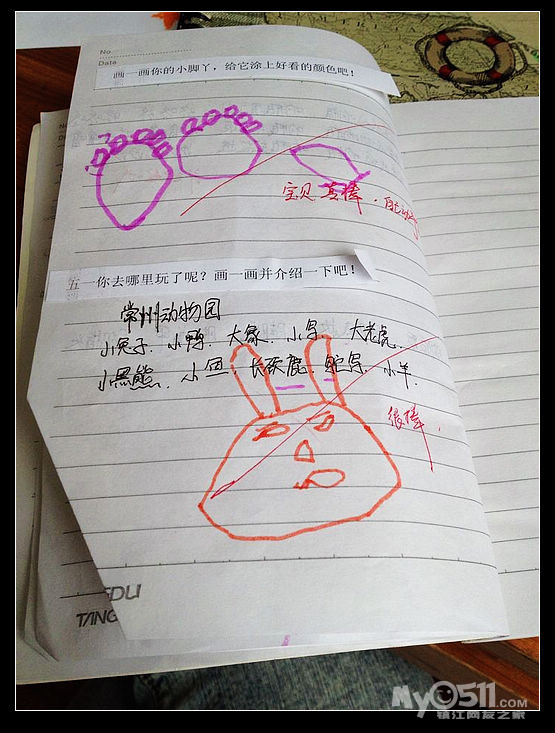 No.
Date
画一画你的小脚丫，给它涂上好看的颜色吧！
宝贝真棒.
五一你去哪里玩了呢？画一画并介绍一下吧！
常州动物园
小兔子、小鸭、大象、小鸟、大老虎、
小黑熊、小鱼、长颈鹿、鸵鸟、小羊.
很棒.
EDU
TANG
MY0511.COM
镇江网友之家